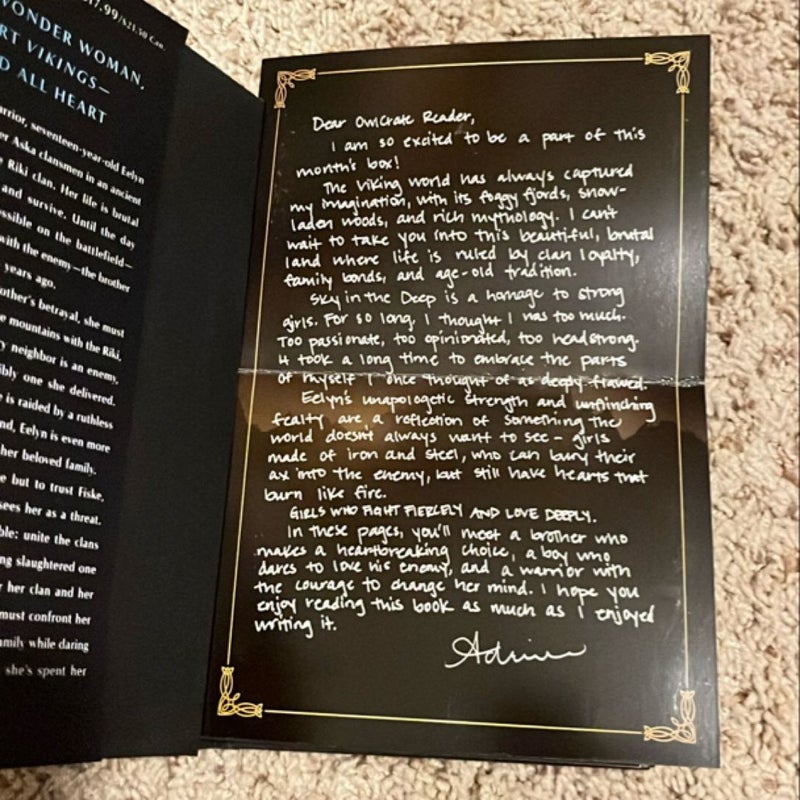 17.99/$21.50 Can.
WONDER WOMAN,
RT VIKINGS—
D ALL HEART
arrior, seventeen-year-old Eelyn
er Aska clansmen in an ancient
Riki clan. Her life is brutal
and survive. Until the day
ossible on the battlefield—
with the enemy—the brother
years ago.
other's betrayal, she must
e mountains with the Riki,
y neighbor is an enemy,
ibly one she delivered.
e is raided by a ruthless
nd, Eelyn is even more
her beloved family.
e but to trust Fiske,
sees her as a threat.
ble: unite the clans
ng slaughtered one
r her clan and her
must confront her
amily while daring
she's spent her
Dear OwlCrate Reader,
I am so excited to be a part of this
month's box!
The Viking world has always captured
my imagination, with its foggy fjords, snow-
laden woods, and rich mythology. I can't
wait to take you into this beautiful, brutal
land where life is ruled by clan loyalty,
family bonds, and age-old tradition.
Sky in the Deep is a homage to strong
girls. For so long, I thought I was too much.
Too passionate, too opinionated, too headstrong.
It took a long time to embrace the parts
of myself I once thought of as deeply flawed.
Eelyn's unapologetic strength and unflinching
fealty are a reflection of something the
world doesn't always want to see - girls
made of iron and steel, who can bury their
ax into the enemy, but still have hearts that
burn like fire.
GIRLS WHO FIGHT FIERCELY AND LOVE DEEPLY.
In these pages, you'll meet a brother who
makes a heartbreaking choice, a boy who
dares to love his enemy, and a warrior with
the courage to change her mind. I hope you
enjoy reading this book as much as I enjoyed
writing it.
Adrienne